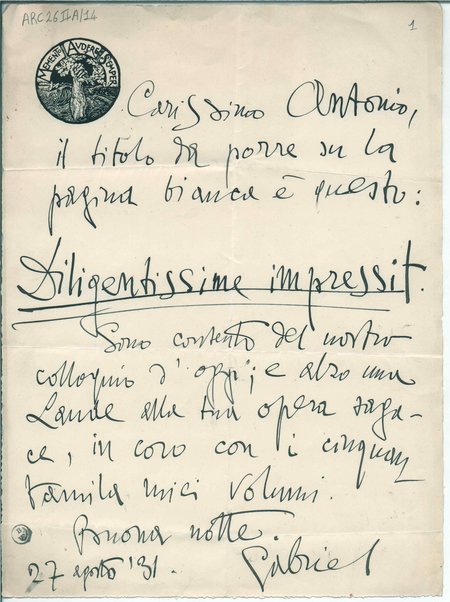 ARC26IIA/14
1
MEMENTO AUDERE SEMPER
Carissimo Antonio,
il titolo da porre su la
pagina bianca è questo:
Diligentissime impressit.
Sono contento del nostro
colloquio d'oggi; e alzo una
Laude alla tua opera saga-
ce, in coro con i cinquan
tamila miei volumi.
Buona notte.
27 agosto '31.
Gabriel